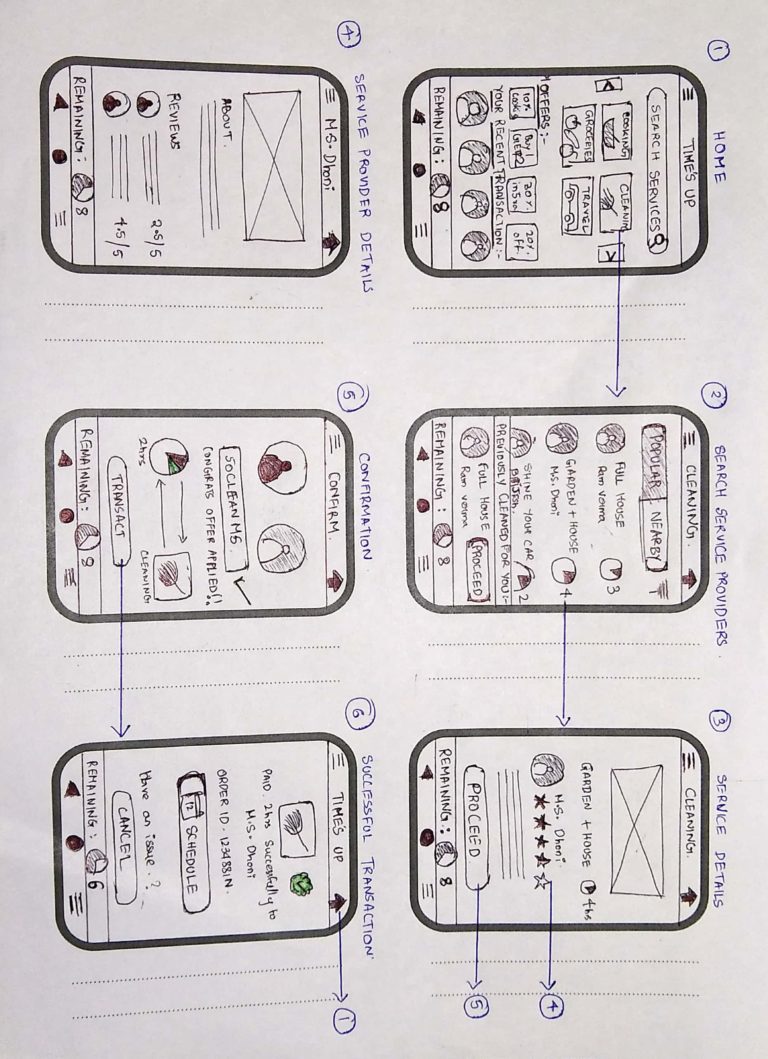 1 HOME
TIME'S UP
SEARCH SERVICES
COOKING CLEANIN
GROCERIES TRAVEL
OFFERS:-
10% Buy 1 30% 20%
GET 2 off.
YOUR RECENT TRANSACTION:-
REMAINING: 8
2 SEARCH SERVICE PROVIDERS
CLEANING.
POPULAR NEARBY
FULL HOUSE 3
Ram Verma
GARDEN + HOUSE 4
M.S. Dhoni
SHINE YOUR CAR 2
PREVIOUSLY CLEANED FOR YOU:-
FULL HOUSE PROCEED
Ram verma
REMAINING: 8
3 SERVICE DETAILS
CLEANING.
GARDEN + HOUSE 4hs
M.S. Dhoni
4
PROCEED 5
REMAINING: 8
4 SERVICE PROVIDER DETAILS
M.S. Dhoni
ABOUT.
REVIEWS
2.5/5
4.5/5
REMAINING: 8
5 CONFIRMATION
CONFIRM.
50CLEANMS
CONGRATS OFFER APPLIED!!
2hrs CLEANING
TRANSACT
REMAINING: 8
6 SUCCESSFUL TRANSACTION
TIME'S UP
1
PAID 2hrs Successfully to
M.S. Dhoni
ORDER ID - 1234881N.
12 SCHEDULE
Have an issue.?
CANCEL
REMAINING: 6